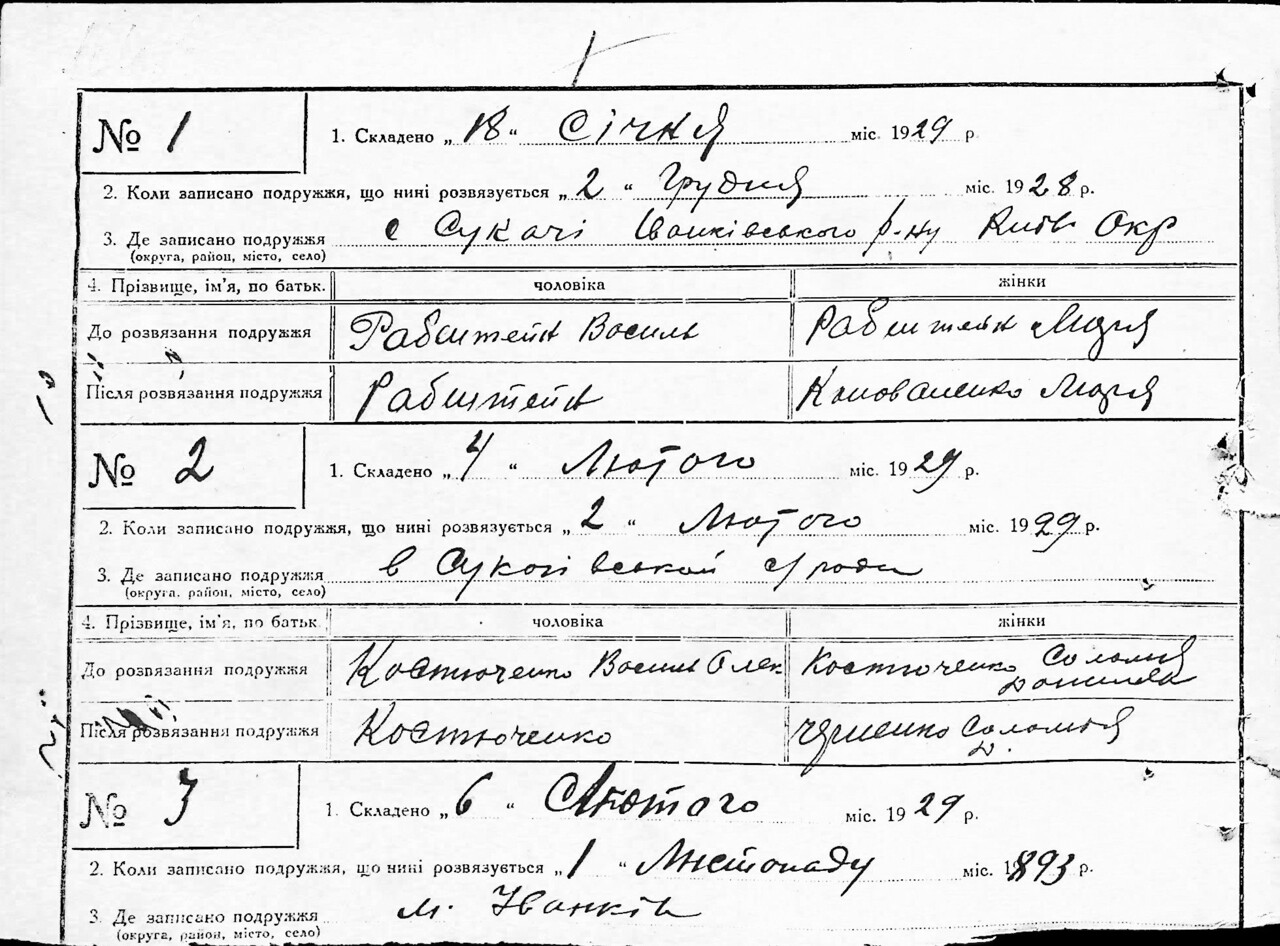 № 1
1. Складено „18“ Січня міс. 1929 р.
2. Коли записано подружжя, що нині розвязується „2“ Грудня міс. 1928 р.
3. Де записано подружжя с Сукачі Іванківського р.ну Київ Окр
(округа, район, місто, село)
4. Прізвище, ім'я, по батьк. чоловіка жінки
До розвязання подружжя Рабштейн Василь Рабштейн
Після розвязання подружжя Рабштейн Коноваленко
№ 2
1. Складено „4“ Лютого міс. 1929 р.
2. Коли записано подружжя, що нині розвязується „2“ Лютого міс. 1929 р.
3. Де записано подружжя в
(округа, район, місто, село)
4. Прізвище, ім'я, по батьк чоловіка жінки
До розвязання подружжя Костюченко Василь Олек Костюченко Соломія
Після розвязання подружжя Костюченко Соломія
№ 3
1. Складено „6“ Лютого міс. 1929 р.
2. Коли записано подружжя, що нині розвязується „1“ Листопаду міс. 1893 р.
3. Де записано подружжя м. Іванків
(округа, район, місто, село)